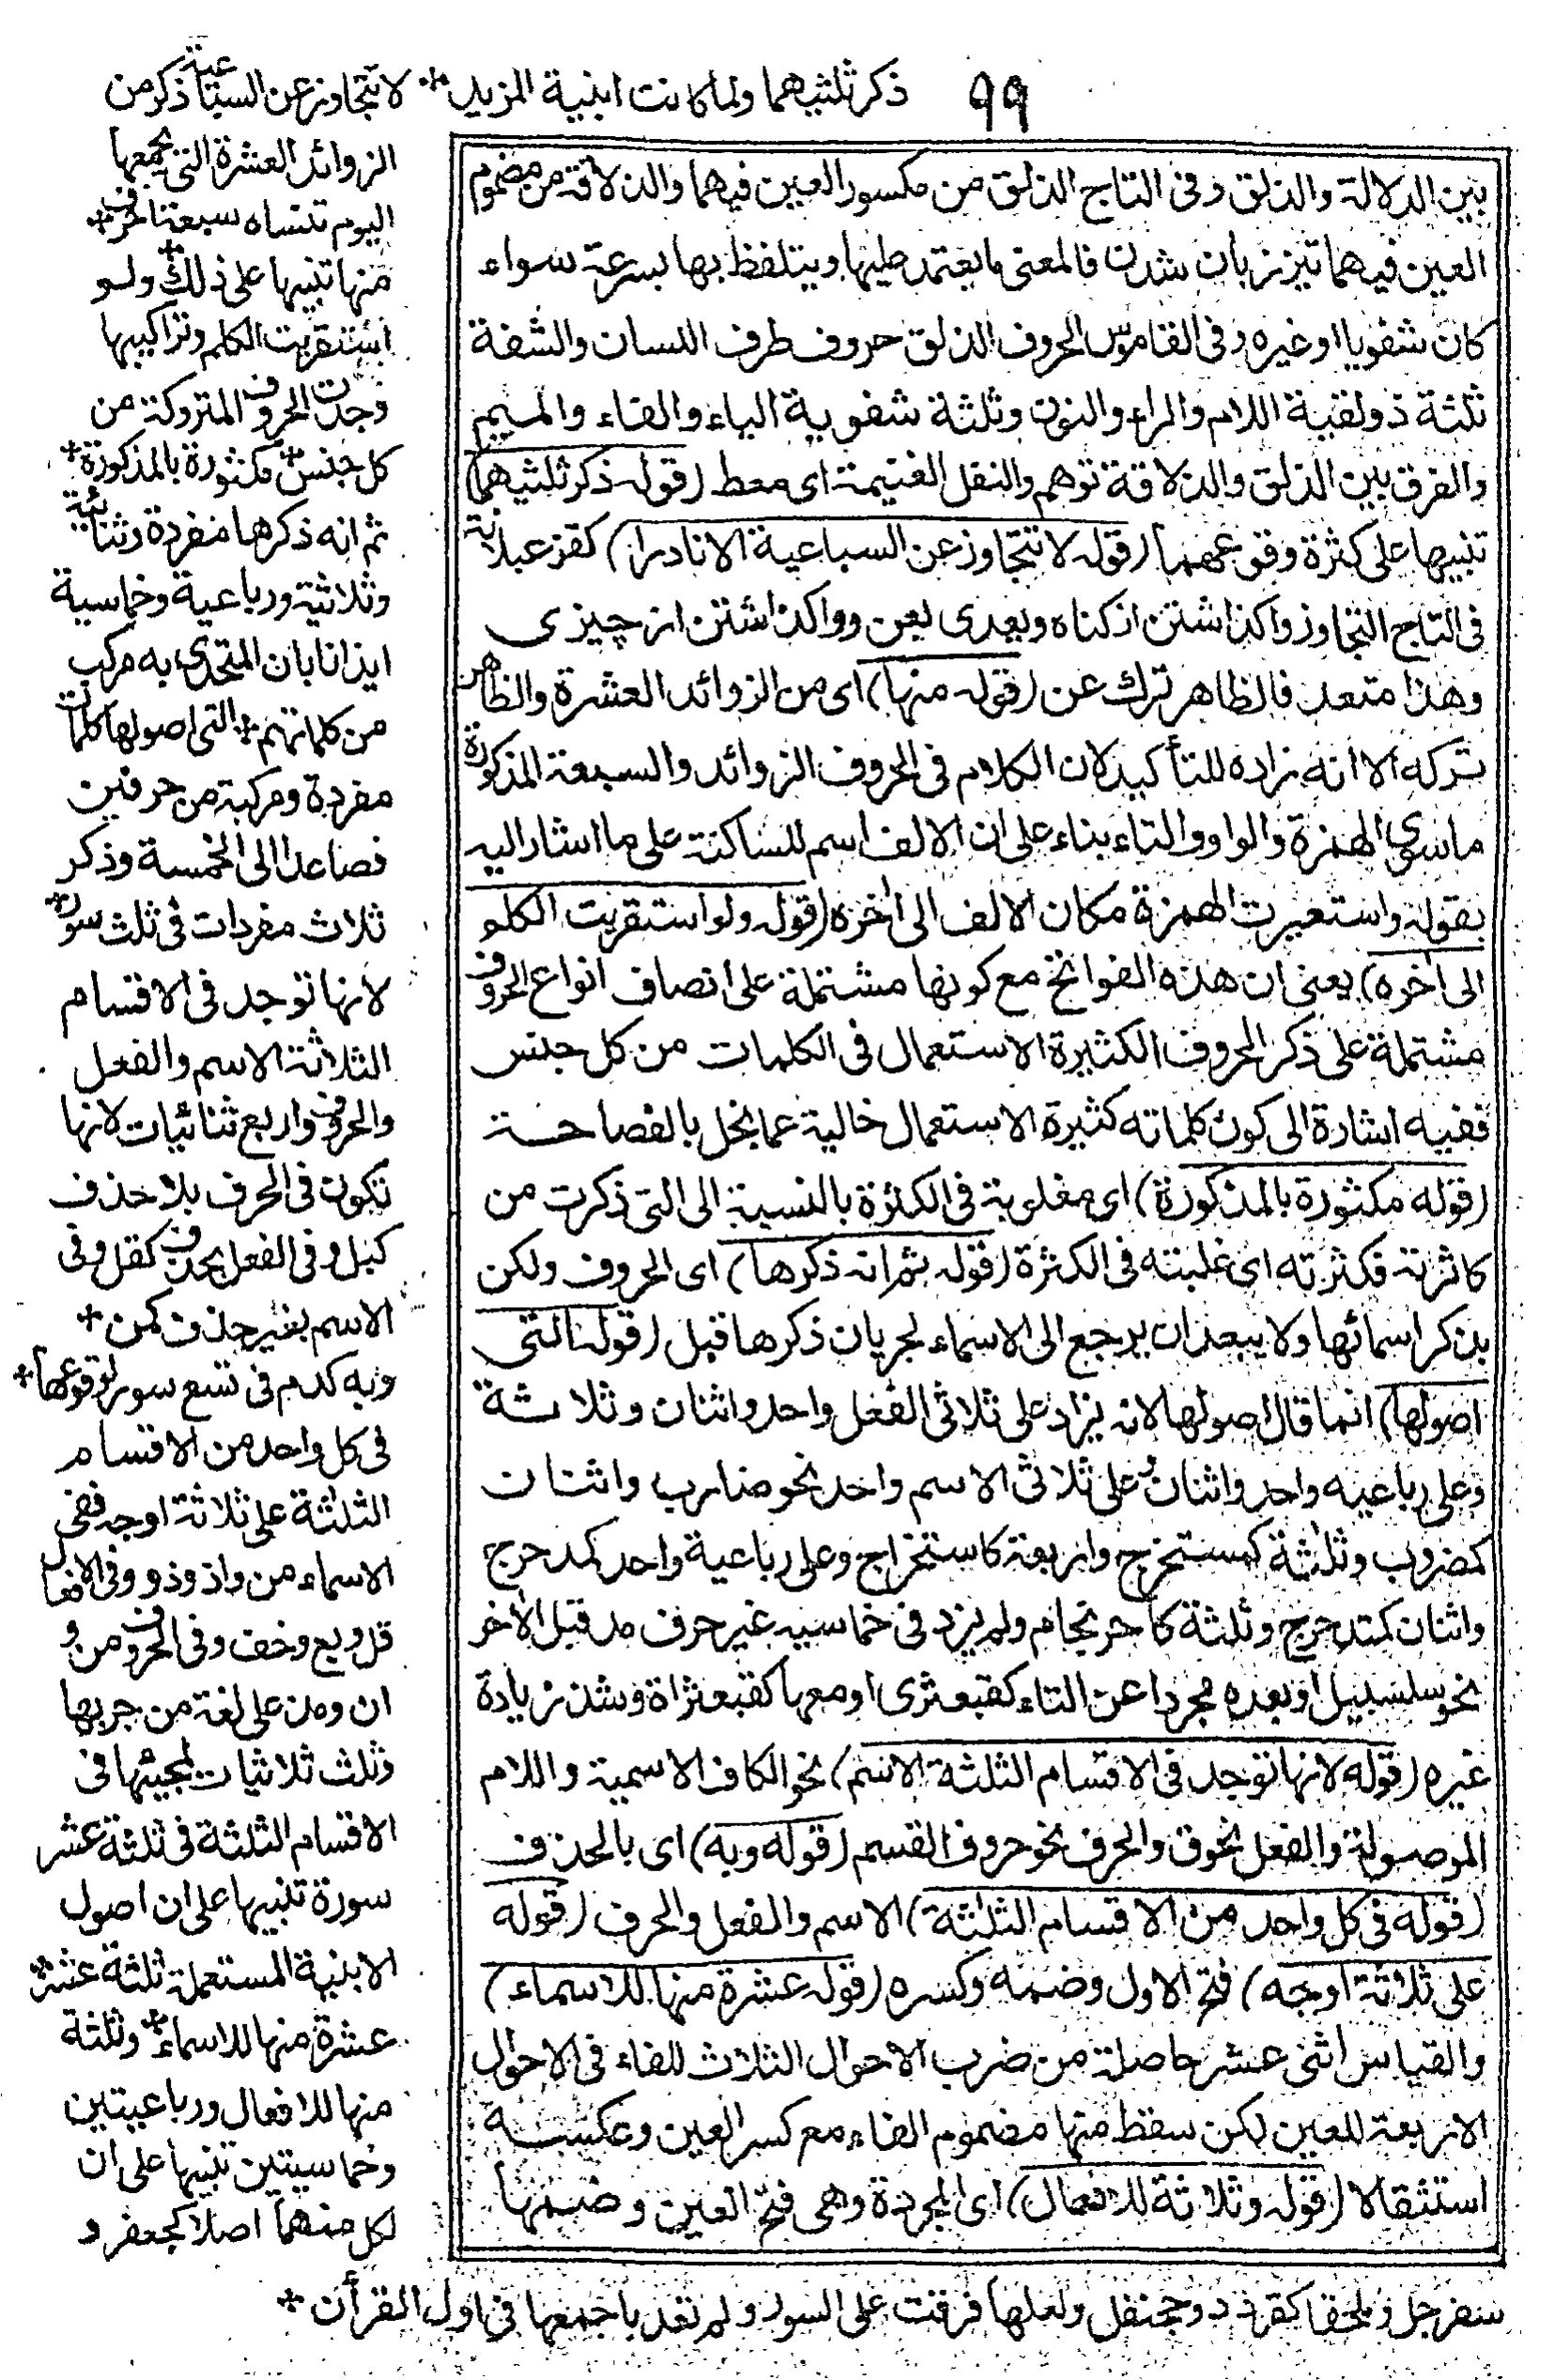 ٩٩
ذكر ثلثيهما ولما كانت ابنية المزيد * لا تتجاوز عن السباعية ذكر من
الزوائد العشرة التى يجمعها
اليوم تنساه سبعة احرف *
منها تنبيها على ذلك * ولو
استقريت الكلم وتراكيبها
وجدت الحروف المتروكة من
كل جنس * مكثورة بالمذكورة *
ثم انه ذكرها مفردة وثنائية
وثلاثية ورباعية وخماسية
ايذانا بان المتحدى به مركب
من كلماتهم * التى اصولها كلمات
مفردة ومركبة من حرفين
فصاعدا الى الخمسة وذكر
ثلاث مفردات فى ثلث سور *
لانها توجد فى الاقسام
الثلاثة الاسم والفعل
والحرف واربع ثنائيات لانها
تكون فى الحرف بلا حذف
كبل وفى الفعل بحذف كقل وفى
الاسم بغير حذف كمن *
وبه كدم فى تسع سور لوقوعها *
فى كل واحد من الاقسام
الثلثة على ثلاثة اوجه ففى
الاسماء من واذ وذو وفى الافعال
قل وبع وخف وفى الحروف من و
ان ومذ على لغة من جربها
وثلث ثلاثيات لمجيئها فى
الاقسام الثلثة فى ثلثة عشر
سورة تنبيها على ان اصول
الابنية المستعملة ثلثة عشر
عشرة منها للاسماء * وثلثة
منها للافعال ورباعيتين
وخماسيتين تنبيها على ان
لكل منهما اصلا كجعفر و
سفرجل وملحقا كقردد وجحنفل ولعلها فرقت على السور ولم تعد باجمعها فى اول القرأن *
بين الدلالة والذلق وفى التاج الذلق من مكسور العين فيهما والذلاقة من مضموم
العين فيهما تيز زبان شدن فالمعنى ما يعتمد عليها ويتلفظ بها بسرعة سواء
كان شفويا او غيره وفى القاموس الحروف الذلق حروف طرف اللسان والشفة
ثلثة ذولقية اللام والراء والنون وثلثة شفوية الباء والفاء والميم
والفرق بين الذلق والذلاقة توهم والنفل الغنيمة اى معط (قوله ذكر ثلثيهما)
تنبيها على كثرة وقوعهما (قوله لا تتجاوز عن السباعية الا نادرا) كقرعبلانة
فى التاج التجاوز واكذاشتن از كناه ويعدى بعن وواكذاشتن از چيزى
وهذا متعد فالظاهر ترك عن (قوله منها) اى من الزوائد العشرة والظاهر
تركه الا انه زاده للتأكيد لان الكلام فى الحروف الزوائد والسبعة المذكورة
ما سوى الهمزة والواو والتاء بناء على ان الالف اسم للساكنة على ما اشار اليه
بقوله واستعيرت الهمزة مكان الالف الى اخره (قوله ولو استقريت الكلم
الى اخره) يعنى ان هذه الفواتح مع كونها مشتملة على انصاف انواع الحروف
مشتملة على ذكر الحروف الكثيرة الاستعمال فى الكلمات من كل جنس
ففيه اشارة الى كون كلماته كثيرة الاستعمال خالية عما يخل بالفصاحة
(قوله مكثورة بالمذكورة) اى مغلوبة فى الكثرة بالنسبة الى التى ذكرت من
كاثرته فكثرته اى غلبته فى الكثرة (قوله ثم انه ذكرها) اى الحروف ولكن
بذكر اسمائها ولا يبعد ان يرجع الى الاسماء لجريان ذكرها قبل (قوله التى
اصولها) انما قال اصولها لانه يزاد على ثلاثى الفعل واحد واثنان وثلاثة
وعلى رباعيه واحد واثنان وعلى ثلاثى الاسم واحد نحو ضارب واثنان
كمضروب وثلثة كمستخرج واربعة كاستخراج وعلى رباعية واحد كمدحرج
واثنان كمتدحرج وثلثة كاحرنجام ولم يزد فى خماسيه غير حرف مد قبل الاخر
نحو سلسبيل او بعده مجردا عن التاء كقبعثرى او معها كقبعثراة وشذ زيادة
غيره (قوله لانها توجد فى الاقسام الثلثة الاسم) نحو الكاف الاسمية واللام
الموصولة والفعل نحو ق والحرف نحو حروف القسم (قوله وبه) اى بالحذف
(قوله فى كل واحد من الاقسام الثلثة) الاسم والفعل والحرف (قوله
على ثلاثة اوجه) فتح الاول وضمه وكسره (قوله عشرة منها للاسماء)
والقياس اثنى عشر حاصلة من ضرب الاحوال الثلاث للفاء فى الاحوال
الاربعة للعين لكن سقط منها مضموم الفاء مع كسر العين وعكسه
استثقالا (قوله وثلاثة للافعال) اى المجردة وهى فتح العين وضمها